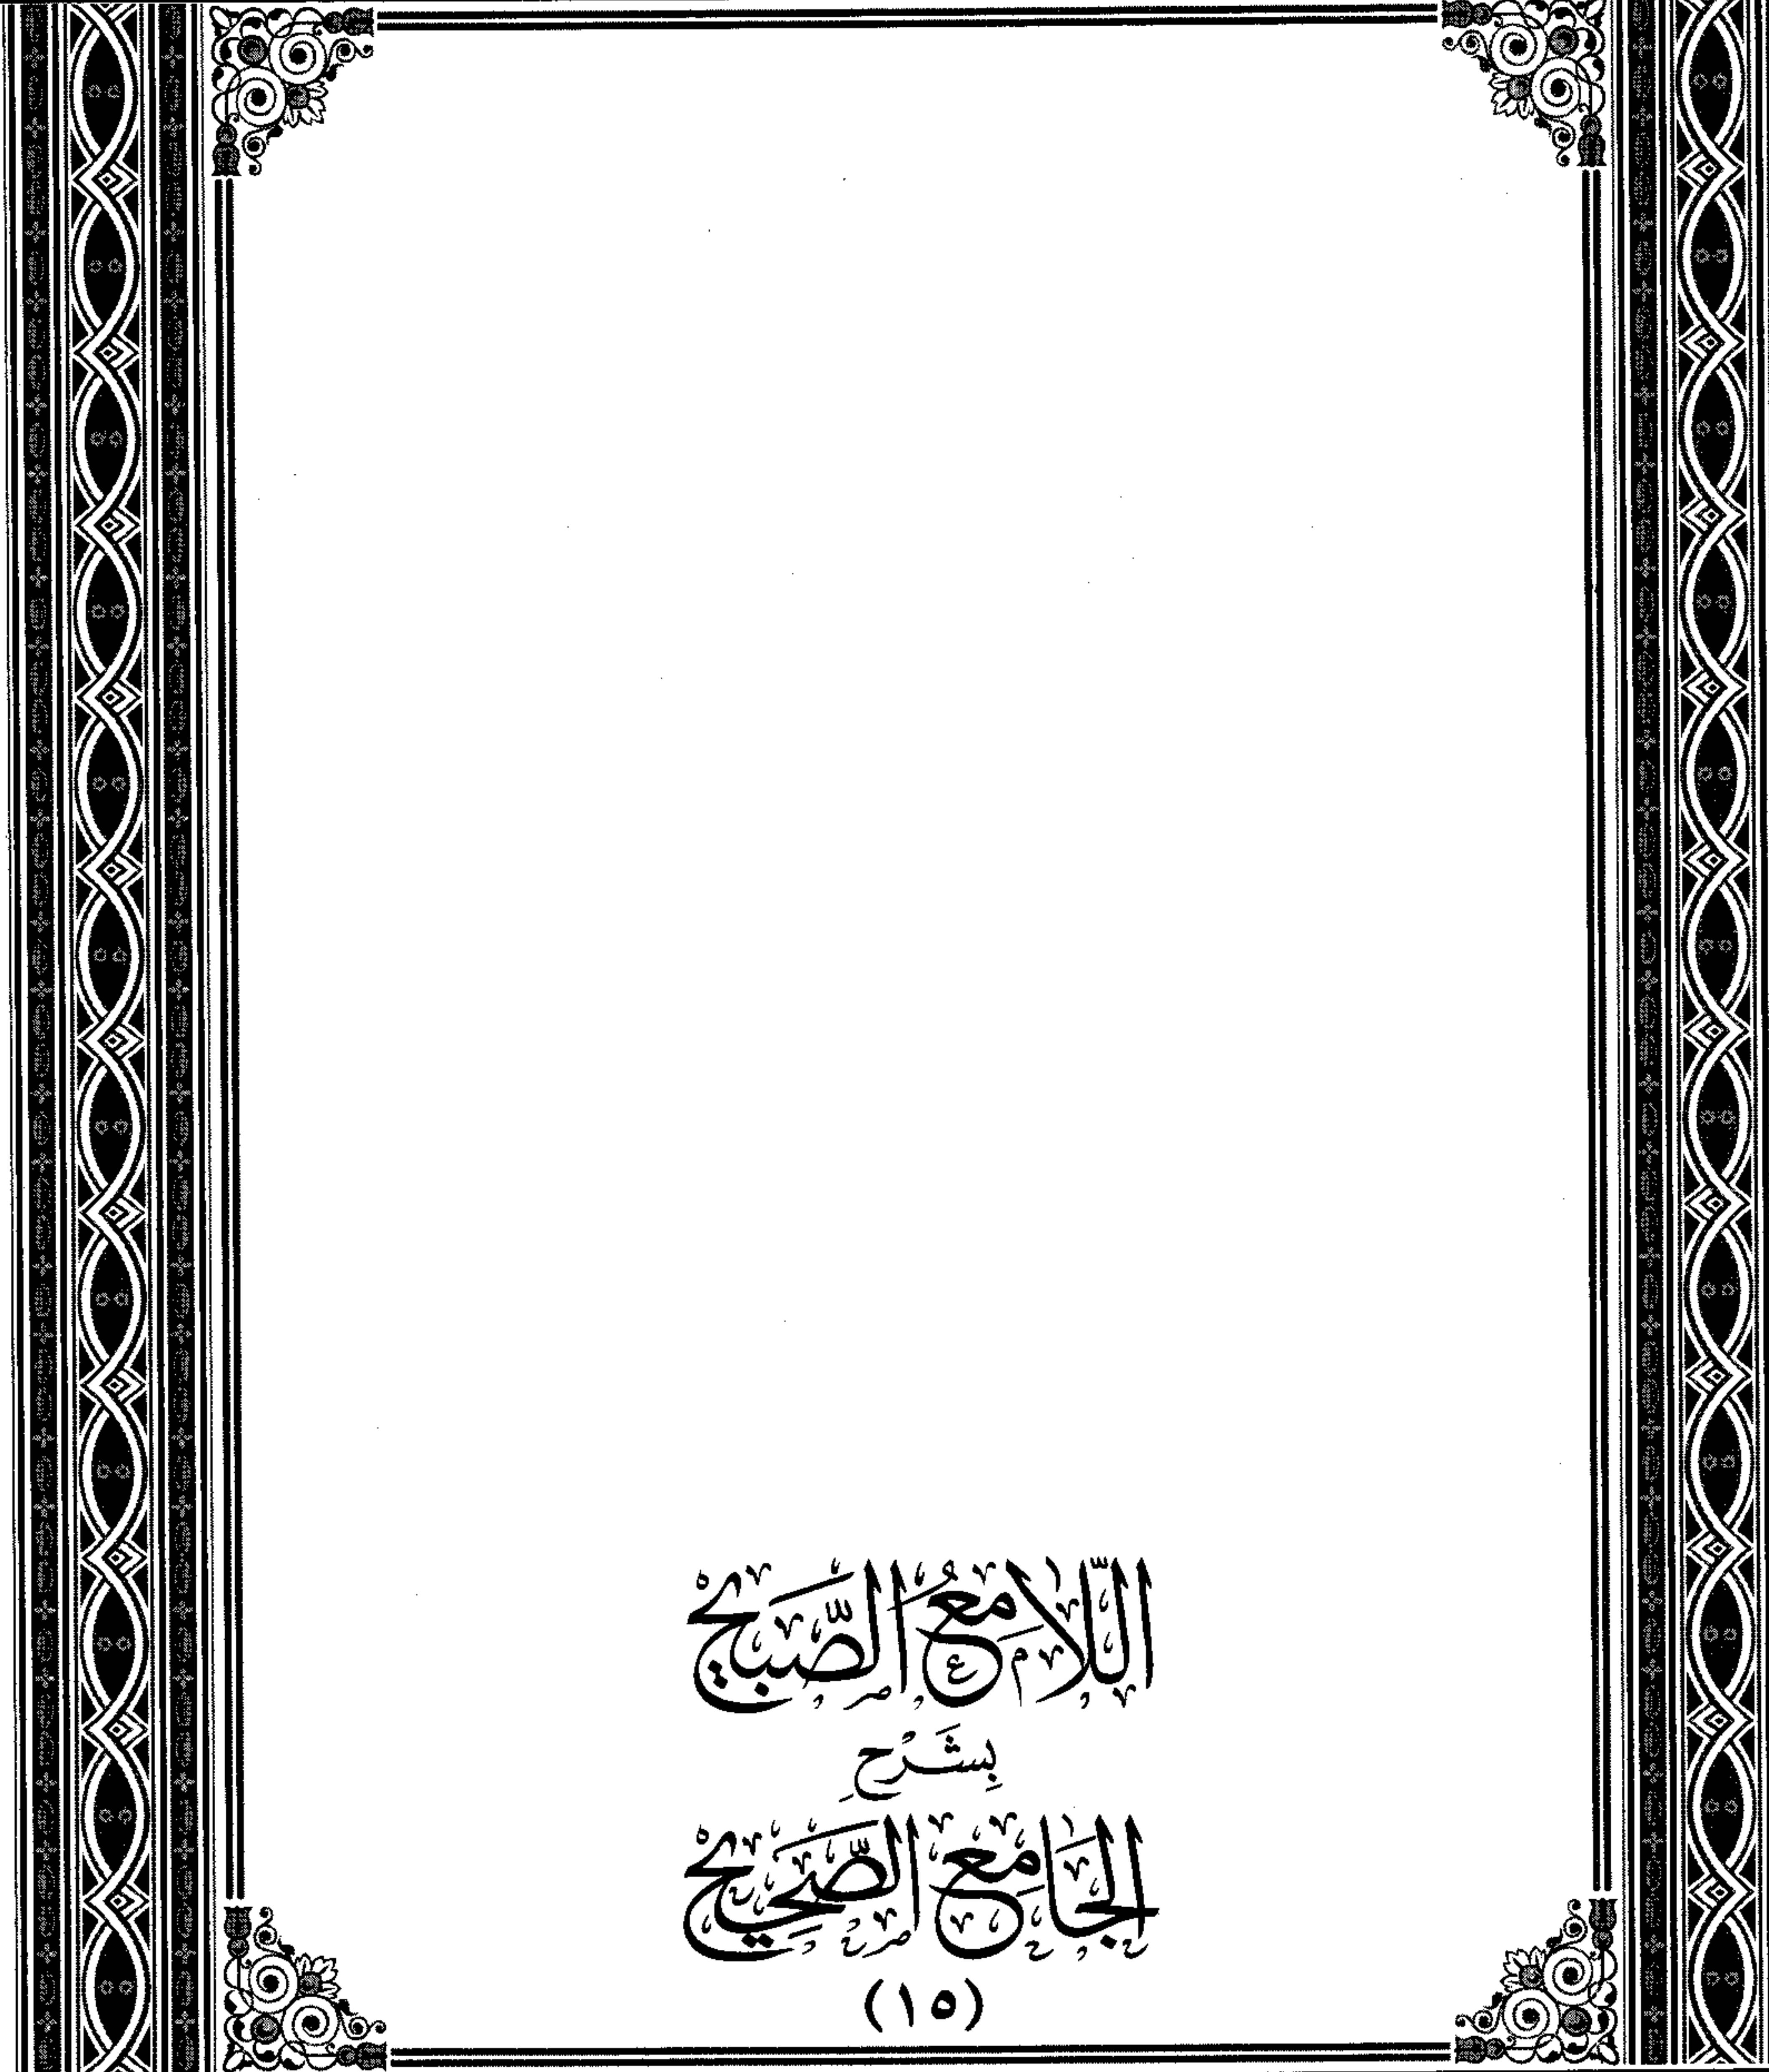 اللَّامِعُ الصَّبِيح
بِشَرْحِ
الجَامِعِ الصَّحِيح
(١٥)